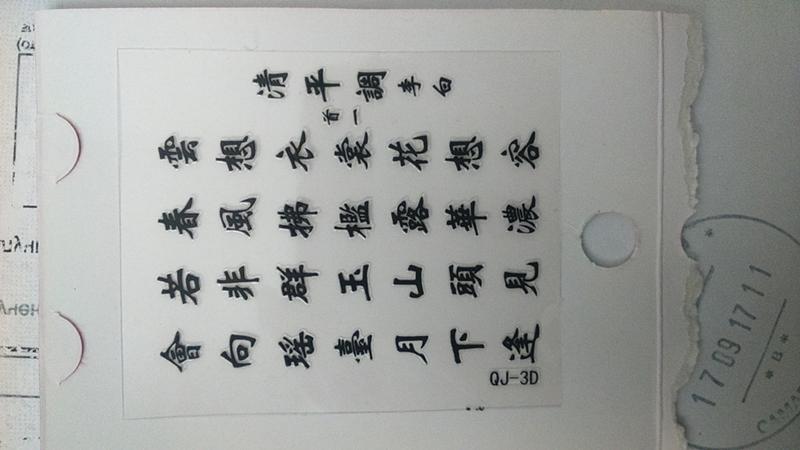 清平調 李白
一首
雲想衣裳花想容
春風拂檻露華濃
若非群玉山頭見
會向瑶臺月下逢
QJ-3D
17 09 17 11
* В *